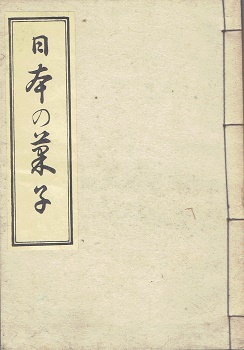 日本の菓子